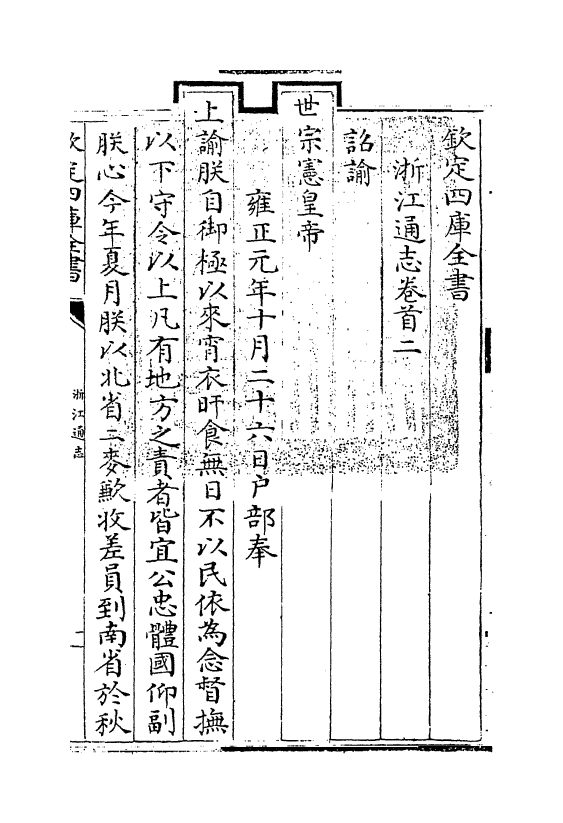 欽定四庫全書
浙江通志卷首二
詔諭
世宗憲皇帝
雍正元年十月二十六日户部奉
上諭朕自御極以來宵衣旰食無日不以民依為念督撫
以下守令以上凡有地方之責者皆宜公忠體國仰副
朕心今年夏月朕以北省二麥歉收差員到南省於秋
欽定四庫全書
浙江通志